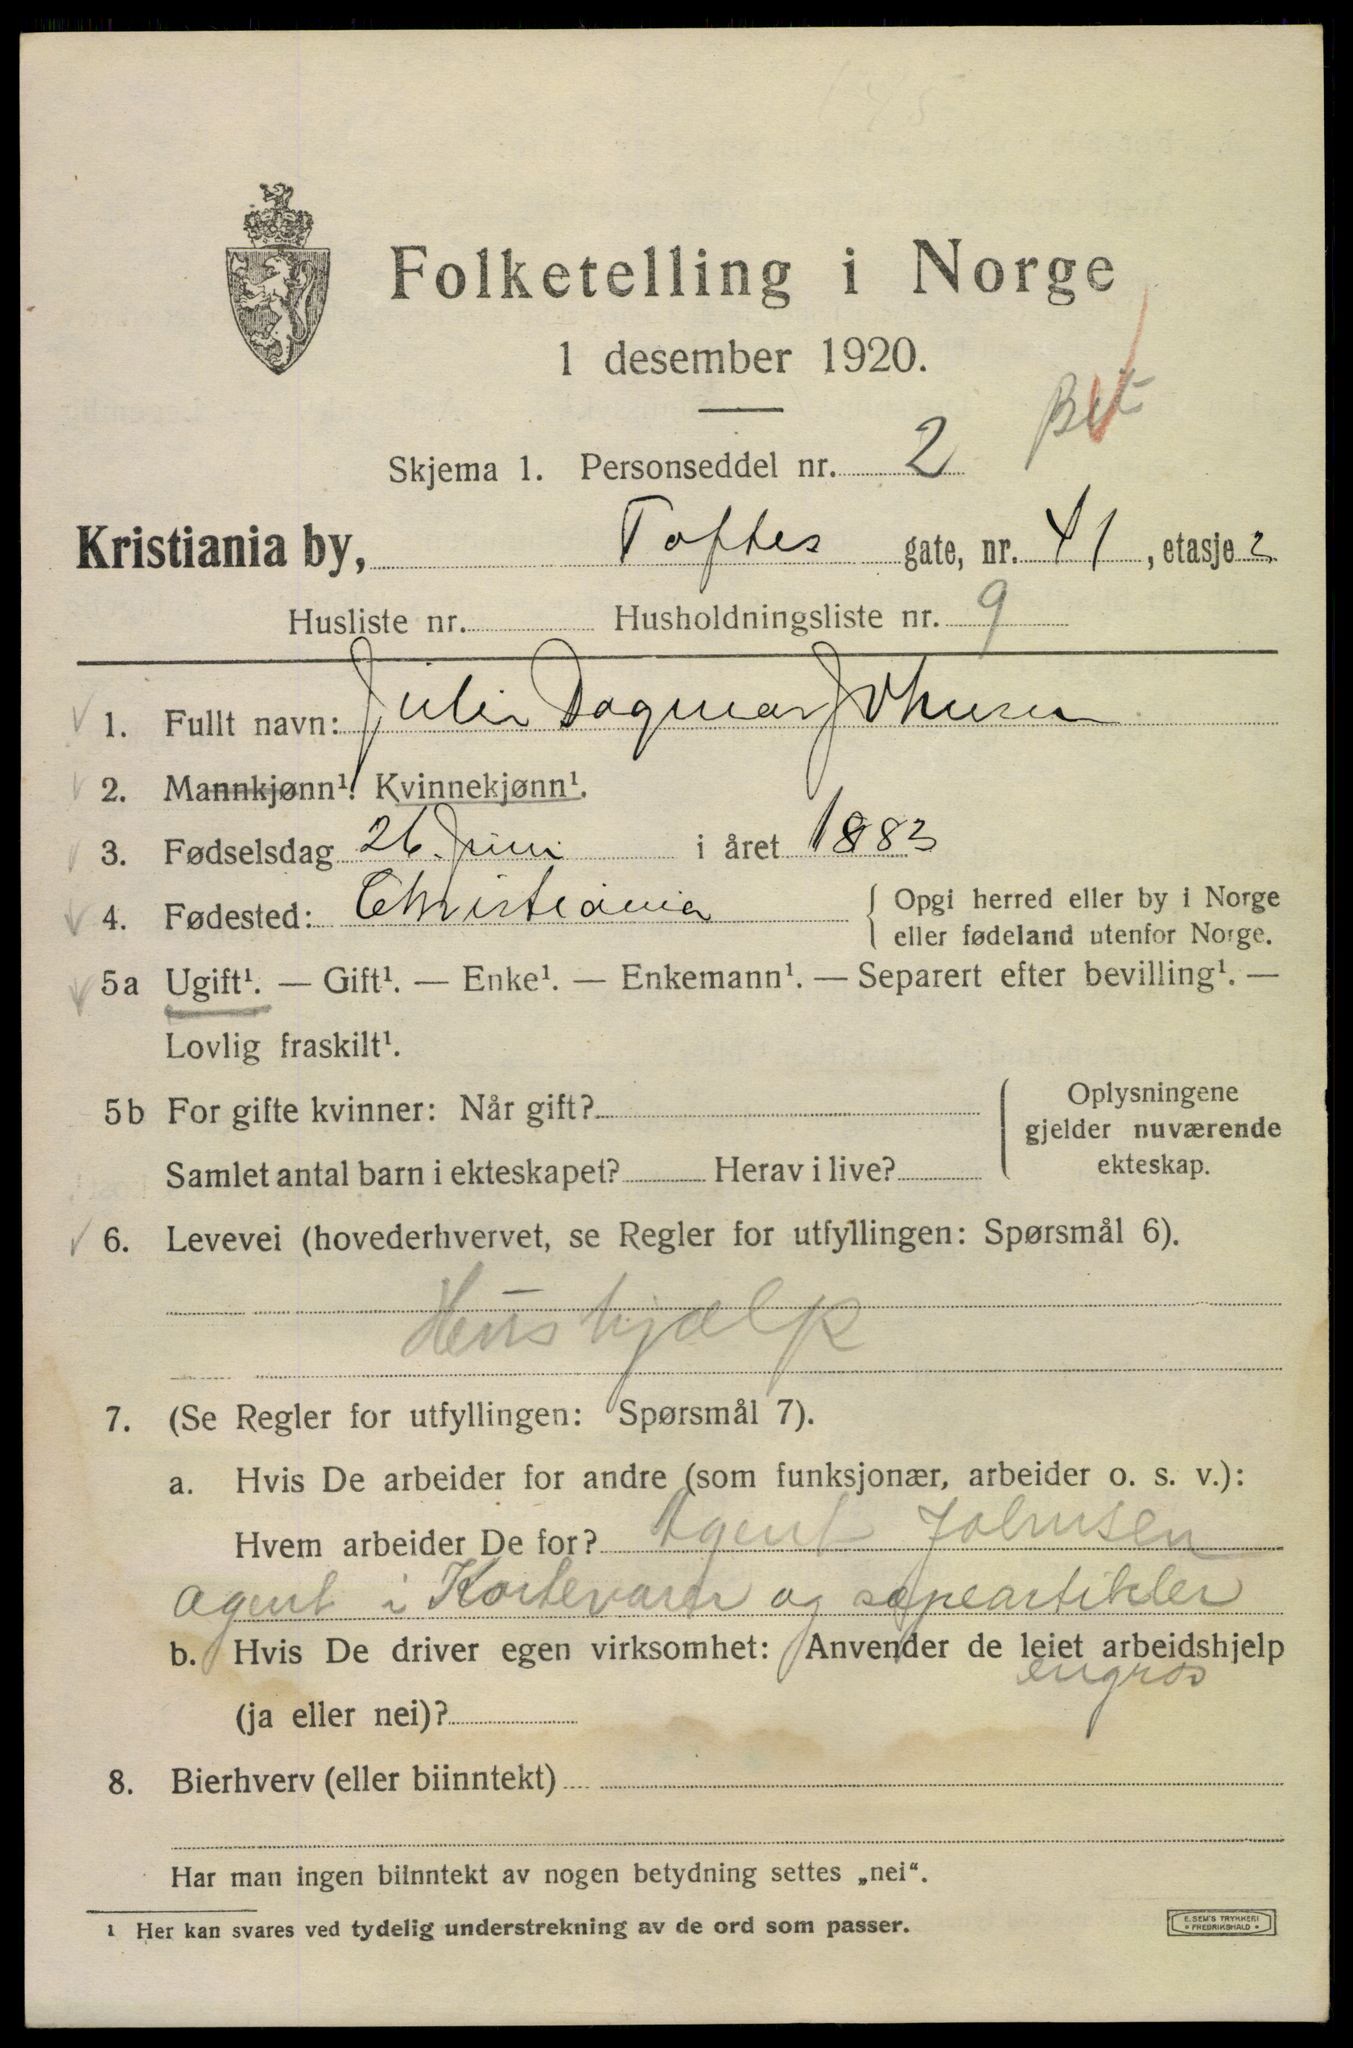 Folketelling i Norge
1 desember 1920.
Skjema 1. Personseddel nr. 2
Kristiania by, Toftes gate, nr. 41, etasje 2
Husliste nr. Husholdningsliste nr. 9
1. Fullt navn: Julie Dagmar Johnsen
2. Mannkjønn¹. Kvinnekjønn¹.
3. Fødselsdag 26 Juni i året 1883
4. Fødested: Christiania { Opgi herred eller by i Norge
eller fødeland utenfor Norge.
5a Ugift¹. — Gift¹. — Enke¹. — Enkemann¹. — Separert efter bevilling¹. —
Lovlig fraskilt¹.
5b For gifte kvinner: Når gift? { Oplysningene
gjelder nuværende
ekteskap.
Samlet antal barn i ekteskapet? Herav i live?
6. Levevei (hovederhvervet, se Regler for utfyllingen: Spørsmål 6).
Hushjælp
7. (Se Regler for utfyllingen: Spørsmål 7).
a. Hvis De arbeider for andre (som funksjonær, arbeider o. s. v.):
Hvem arbeider De for? Agent Johnsen
agent i Kortevarer og sepeartikler
engros
b. Hvis De driver egen virksomhet: Anvender de leiet arbeidshjelp
(ja eller nei)?
8. Bierhverv (eller biinntekt)
Har man ingen biinntekt av nogen betydning settes „nei“.
¹ Her kan svares ved tydelig understrekning av de ord som passer.
E. SEM'S TRYKKERI
FREDRIKSHALD